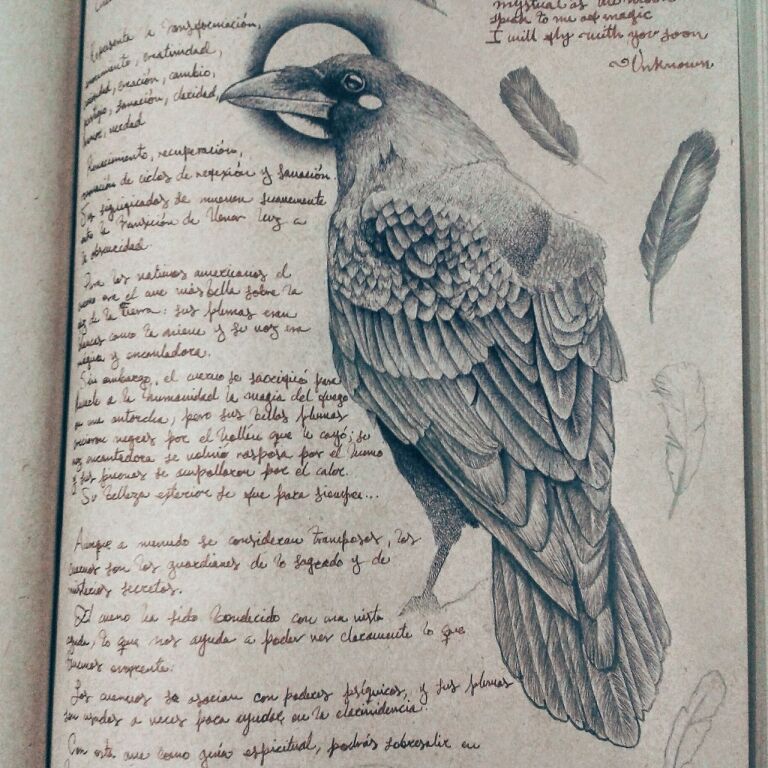 mystual as the moon
speak to me of magic
I will fly with you soon
~Unknown
Representa la transformación,
movimiento, creatividad,
creación, cambio,
sanación, claridad,
verdad
Renacimiento, recuperación,
de ciclos de reflexión y sanación.
significados de mueven suavemente
la transición de llevar luz a
la obscuridad
Para los nativos americanos el
era el ave más bella sobre la
de la tierra: sus plumas eran
blancas como la nieve y su voz era
mágica y encantadora.
Sin embargo, el cuervo se sacrificó para
a la humanidad la magia del fuego
en una antorcha, pero sus bellas plumas
negras por el hollín que le cayó; su
voz encantadora se volvió rasposa por el humo
y sus por el calor.
Su belleza exterior se fue para siempre...
Aunque a menudo se consideran tramposos, los
cuervos son los guardianes de lo sagrado y de
misterios secretos.
El cuervo ha sido bendecido con una vista
aguda, lo que nos ayuda a poder ver claramente lo que
tenemos enfrente.
Los cuervos se asocian con poderes psíquicos, y sus plumas
son usadas a veces para ayudar en la clarividencia.
Con esta ave como guía espiritual, podrás sobresalir en